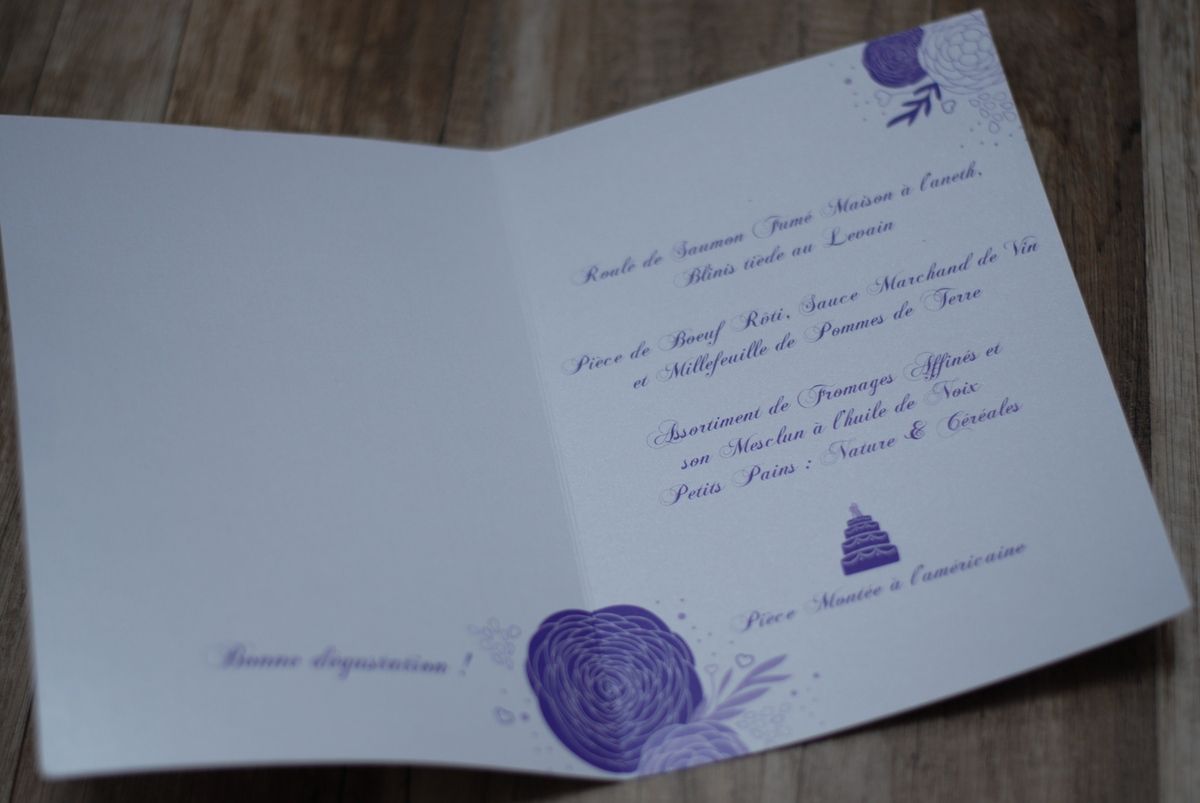 Bonne dégustation !
Roulé de Saumon Fumé Maison à l'aneth,
Blinis tiède au Levain
Pièce de Boeuf Rôti, Sauce Marchand de Vin
et Millefeuille de Pommes de Terre
Assortiment de Fromages Affinés et
son Mesclun à l'huile de Noix
Petits Pains : Nature & Céréales
Pièce Montée à l'américaine